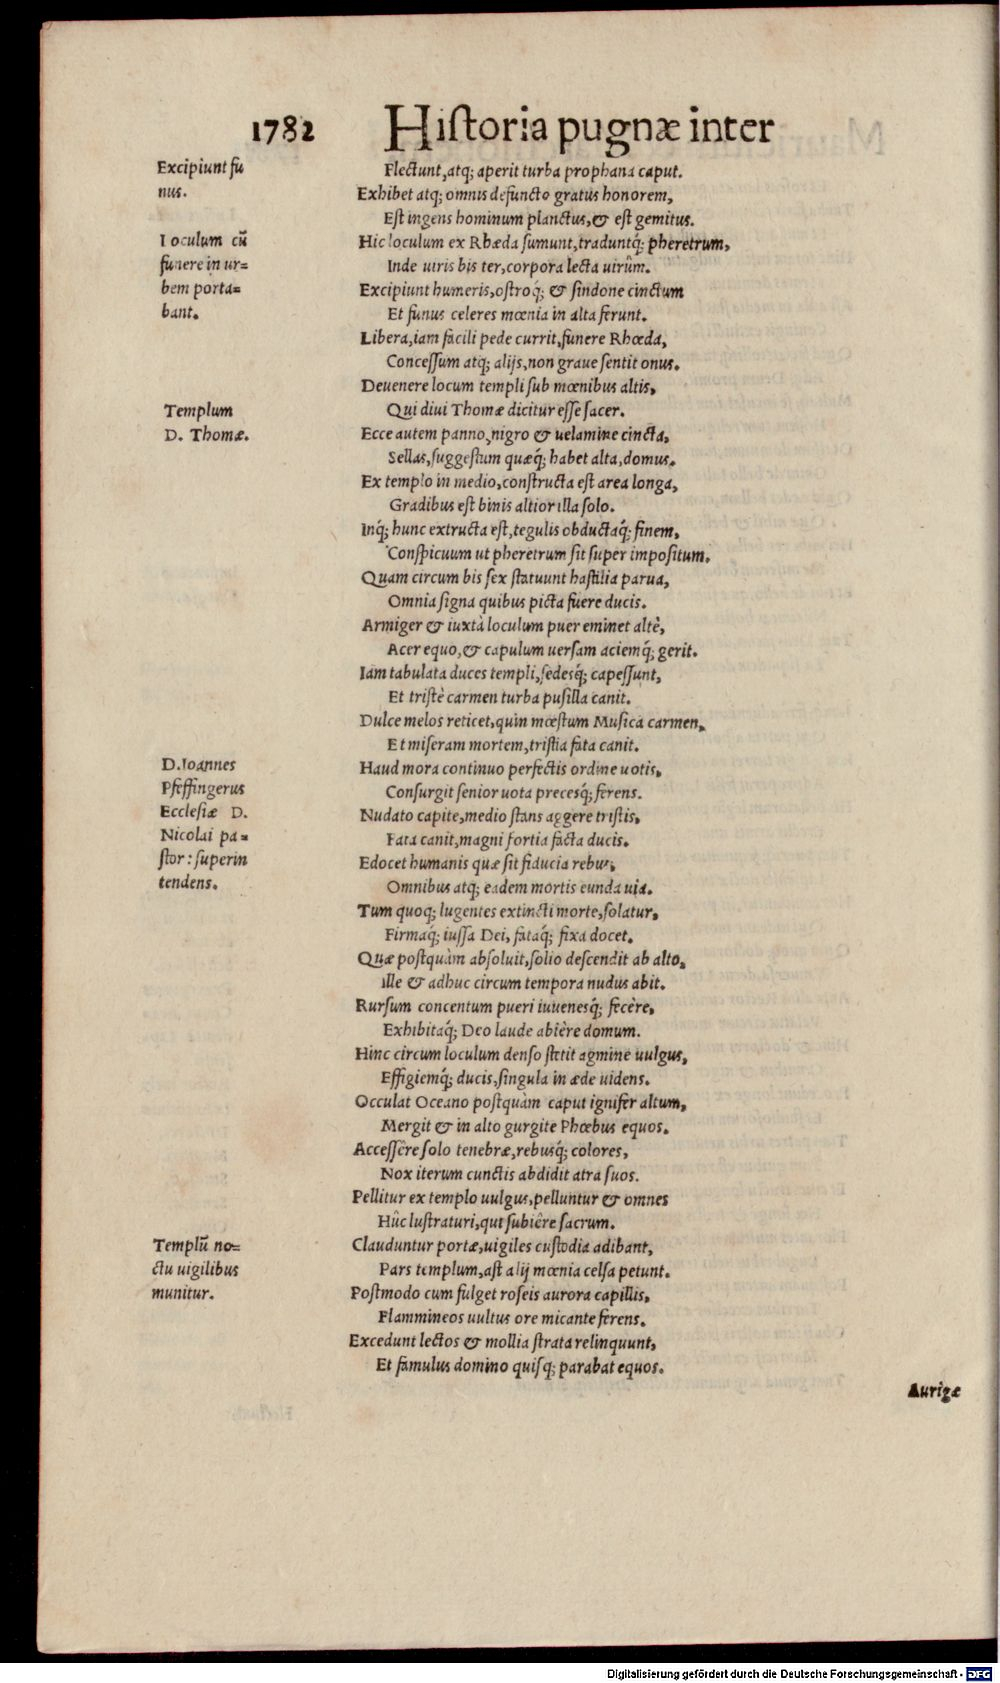 1782 Hiſtoria pugnæ inter
Excipiunt fu
nus.
Flectunt, atq; aperit turba prophana caput.
Exhibet atq; omnis defuncto gratus honorem,
Eſt ingens hominum planctus, & eſt gemitus.
Loculum cū
funere in ur=
bem porta=
bant.
Hic loculum ex Rhæda ſumunt, traduntq́; pheretrum,
Inde uiris bis ter, corpora lecta uirûm.
Excipiunt humeris, oſtroq́; & ſindone cinctum
Et funus celeres mœnia in alta ferunt.
Libera, iam facili pede currit, funere Rhœda,
Conceſſum atq; alijs, non graue ſentit onus.
Deuenere locum templi ſub mœnibus altis,
Templum
D. Thomæ.
Qui diui Thomæ dicitur eſſe ſacer.
Ecce autem panno, nigro & uelamine cincta,
Sellas, ſuggeſtum quæq́; habet alta, domus.
Ex templo in medio, conſtructa eſt area longa,
Gradibus eſt binis altior illa ſolo.
Inq́; hunc extructa eſt, tegulis obductaq́; finem,
Conſpicuum ut pheretrum ſit ſuper impoſitum.
Quam circum bis ſex ſtatuunt haſtilia parua,
Omnia ſigna quibus picta fuere ducis.
Armiger & iuxtà loculum puer eminet altè,
Acer equo, & capulum uerſam aciemq́; gerit.
Iam tabulata duces templi, ſedesq́; capeſſunt,
Et triſtè carmen turba puſilla canit.
Dulce melos reticet, quin mœſtum Muſica carmen,
Et miſeram mortem, triſtia fata canit.
D. Ioannes
Pfeffingerus
Eccleſiæ D.
Nicolai pa=
ſtor: ſuperin
tendens.
Haud mora continuo perfectis ordine uotis,
Conſurgit ſenior uota precesq́; ferens.
Nudato capite, medio ſtans aggere triſtis,
Fata canit, magni fortia facta ducis.
Edocet humanis quæ ſit fiducia rebus,
Omnibus atq; eadem mortis eunda uia.
Tum quoq; lugentes extincti morte, ſolatur,
Firmaq́; iuſſa Dei, fataq́; fixa docet.
Quæ poſtquàm abſoluit, ſolio deſcendit ab alto,
Ille & adhuc circum tempora nudus abit.
Rurſum concentum pueri iuuenesq́; fecère,
Exhibitaq́; Deo laude abière domum.
Hinc circum loculum denſo ſtetit agmine uulgus,
Effigiemq́; ducis, ſingula in æde uidens.
Occulat Oceano poſtquàm caput ignifer altum,
Mergit & in alto gurgite Phœbus equos.
Acceſſêre ſolo tenebræ, rebusq́; colores,
Nox iterum cunctis abdidit atra ſuos.
Pellitur ex templo uulgus, pelluntur & omnes
Hûc luſtraturi, qui ſubiêre ſacrum.
Templū no=
ctu uigilibus
munitur.
Clauduntur portæ, uigiles cuſtodia adibant,
Pars templum, aſt alij mœnia celſa petunt.
Poſtmodo cum fulget roſeis aurora capillis,
Flammineos uultus ore micante ferens.
Excedunt lectos & mollia ſtrata relinquunt,
Et famulus domino quiſq; parabat equos.
Aurigæ
Digitalisierung gefördert durch die Deutsche Forschungsgemeinschaft - DFG